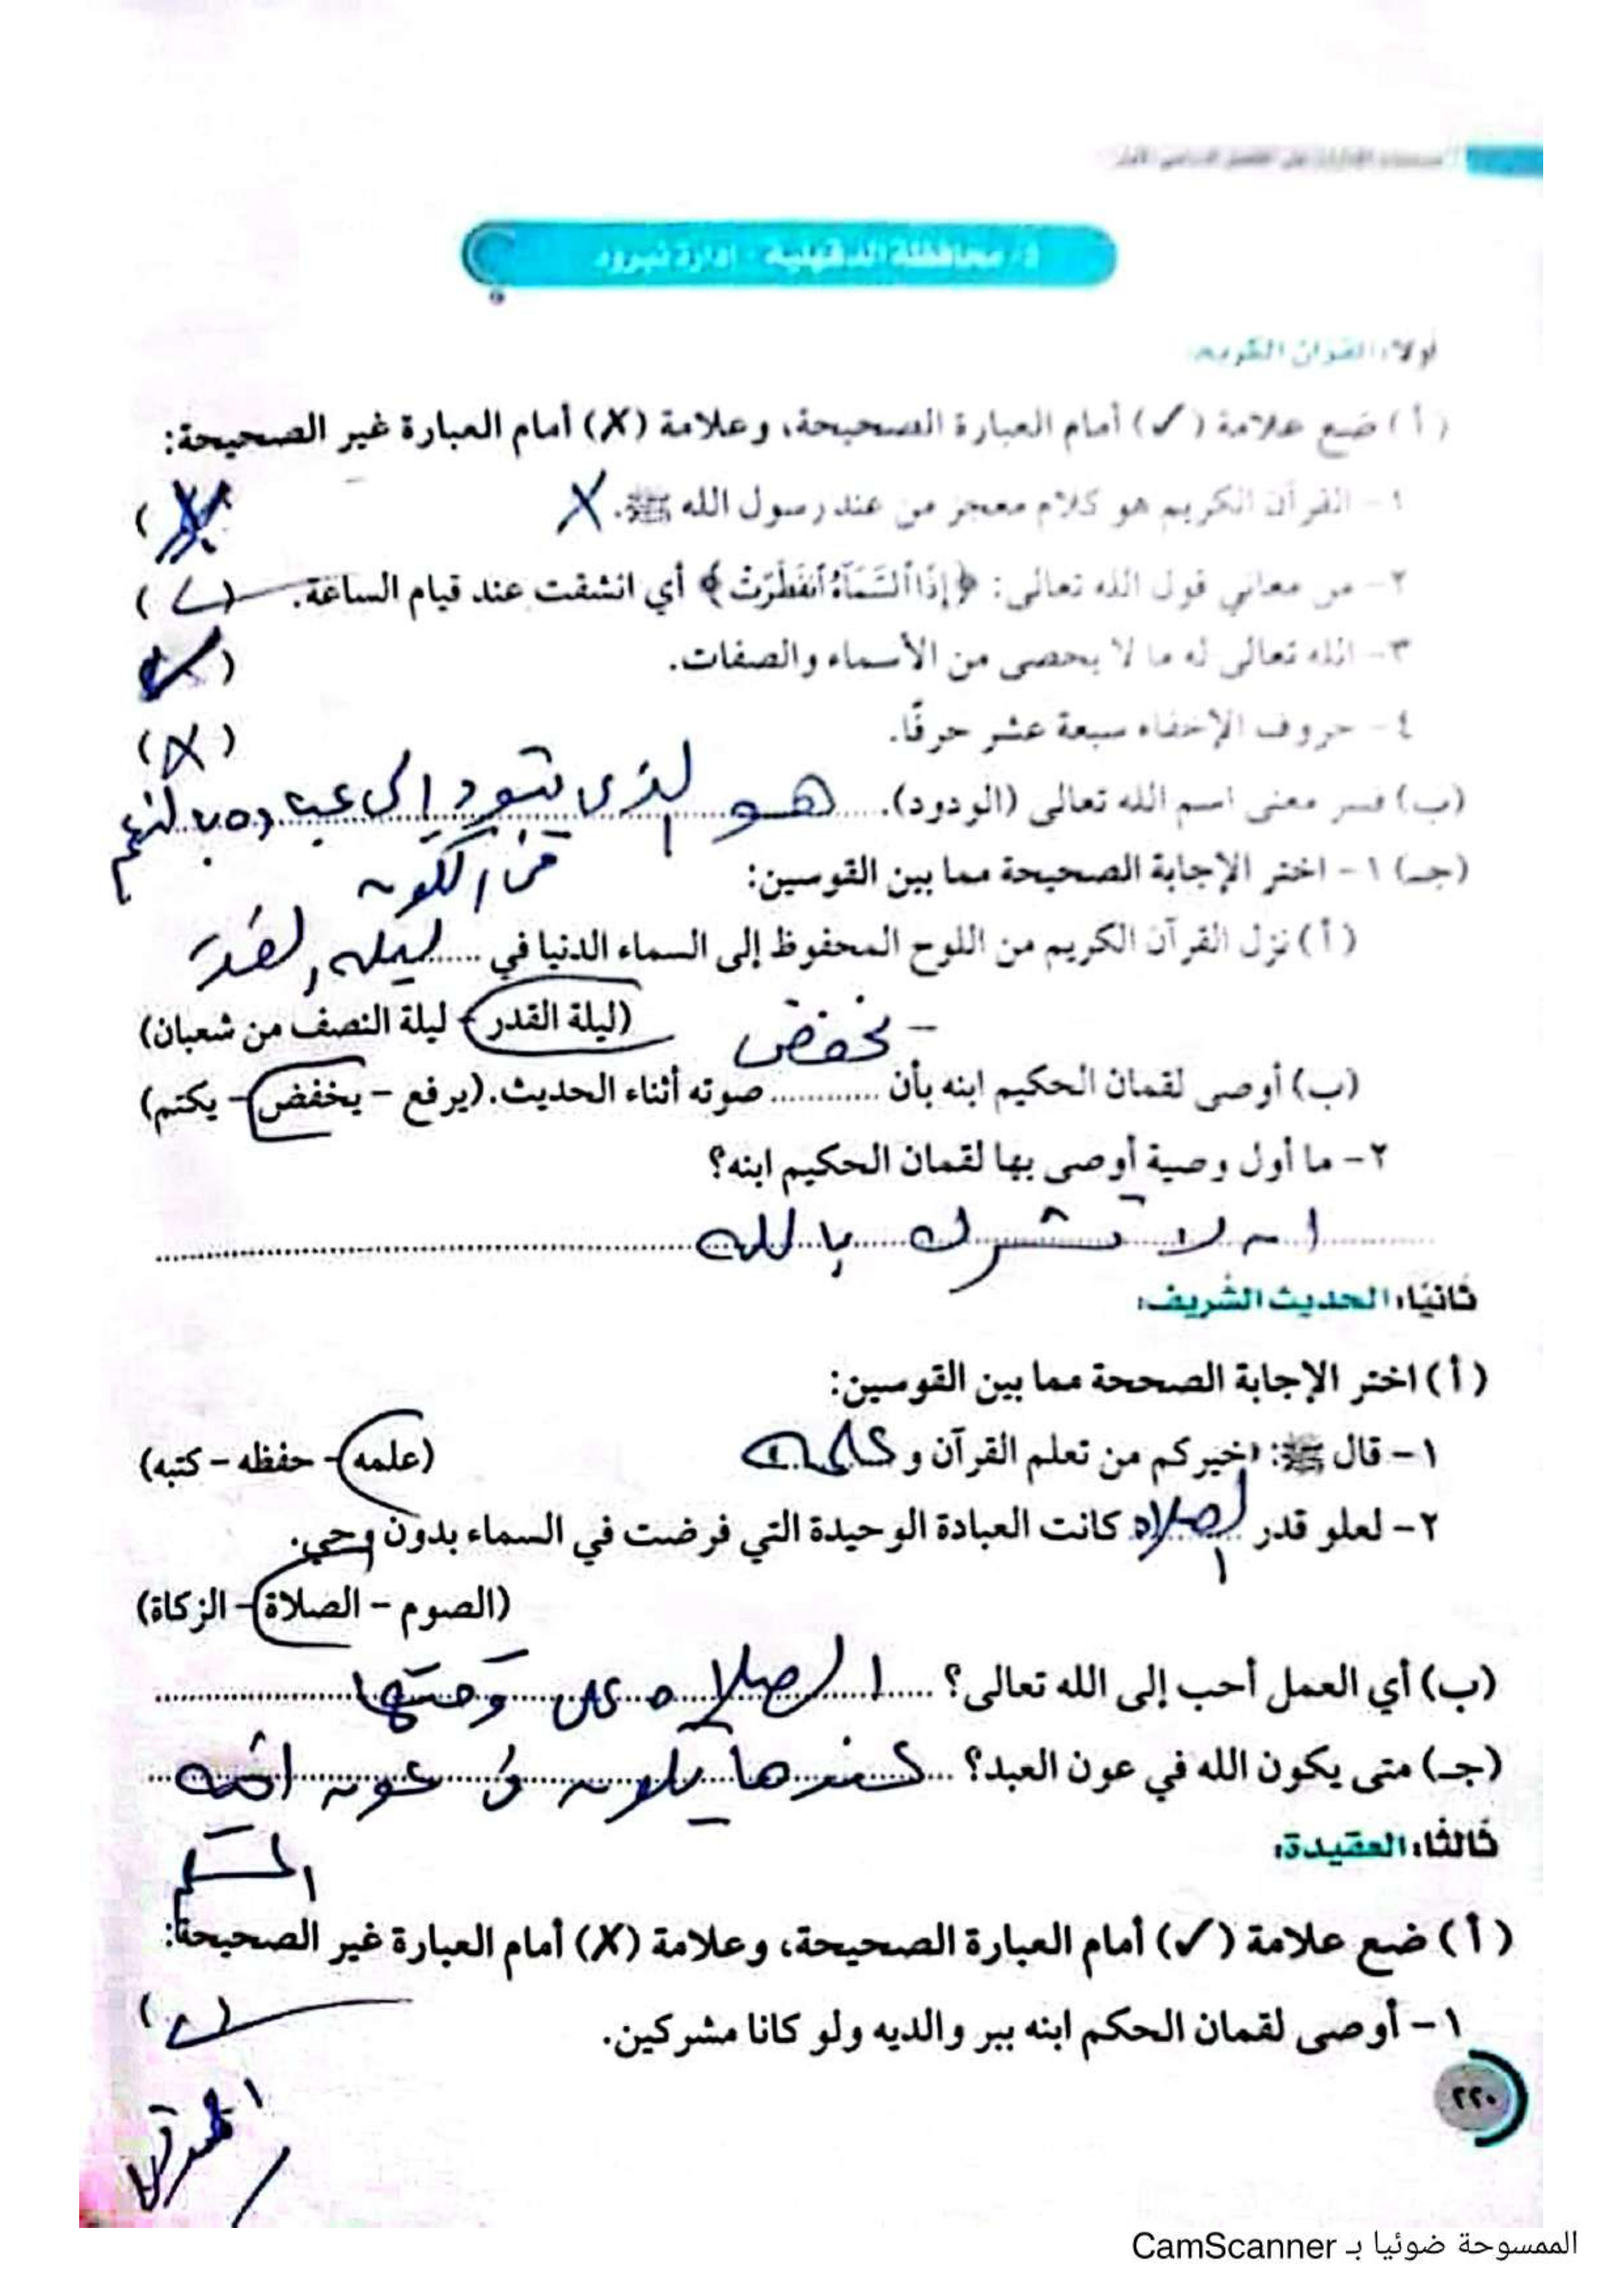 ٥- محافظة الدقهلية - إدارة نبروه
أولا: القرآن الكريم:
( أ ) ضع علامة (✓) أمام العبارة الصحيحة، وعلامة (X) أمام العبارة غير الصحيحة:
١- القرآن الكريم هو كلام معجز من عند رسول الله ﷺ. X ( X )
٢- من معاني قول الله تعالى: ﴿إِذَا ٱلسَّمَآءُ ٱنفَطَرَتْ﴾ أي انشقت عند قيام الساعة. (✓)
٣- الله تعالى له ما لا يحصى من الأسماء والصفات. (✓)
٤- حروف الإخفاء سبعة عشر حرفًا. (X)
(ب) فسر معنى اسم الله تعالى (الودود). هو الذى يتودد إلى عباده
(جـ) ١- اختر الإجابة الصحيحة مما بين القوسين:
( أ ) نزل القرآن الكريم من اللوح المحفوظ إلى السماء الدنيا في ..... ليله القدر
(ليلة القدر - ليلة النصف من شعبان)
يخفض
(ب) أوصى لقمان الحكيم ابنه بأن ............ صوته أثناء الحديث. (يرفع - يخفض - يكتم)
٢- ما أول وصية أوصى بها لقمان الحكيم ابنه؟
ان لا تشرك بالله
ثانيًا: الحديث الشريف:
( أ ) اختر الإجابة الصححة مما بين القوسين:
١- قال ﷺ: «خيركم من تعلم القرآن و علمه (علمه - حفظه - كتبه)
٢- لعلو قدر الصلاه كانت العبادة الوحيدة التي فرضت في السماء بدون وحي.
(الصوم - الصلاة - الزكاة)
(ب) أي العمل أحب إلى الله تعالى؟ ..... الصلاه على وقتها
(جـ) متى يكون الله في عون العبد؟ ... عندما يكون فى عون اخيه
المسلم
ثالثًا: العقيدة:
( أ ) ضع علامة (✓) أمام العبارة الصحيحة، وعلامة (X) أمام العبارة غير الصحيحة:
١- أوصى لقمان الحكم ابنه ببر والديه ولو كانا مشركين. (✓)
٢٢٠
الممسوحة ضوئيا بـ CamScanner